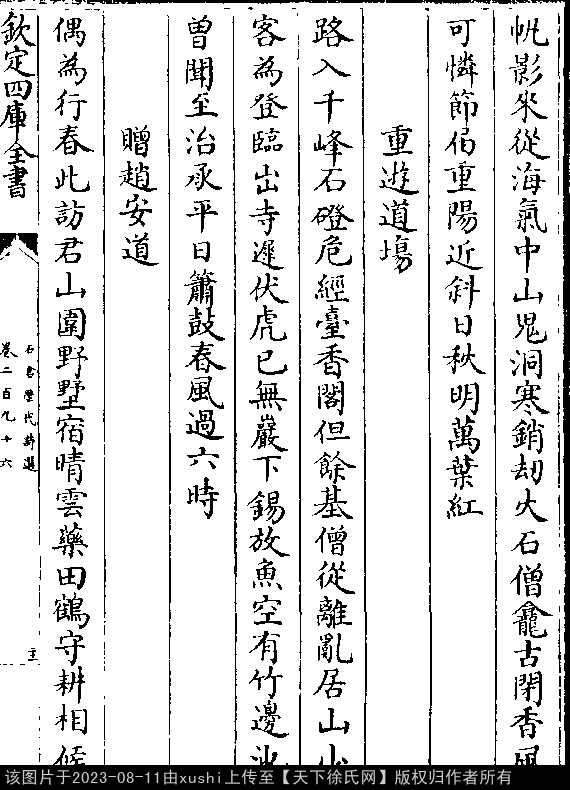 帆影來從海氣中山鬼洞寒銷劫火石僧龕古閉香風
可憐節侶重陽近斜日秋明萬葉紅
重遊道塲
路入千峰石磴危經臺香閣但餘基僧從離亂居山少
客為登臨出寺遲伏虎已無巖下錫放魚空有竹邊池
曽聞至治承平日簫鼓春風過六時
贈趙安道
偶為行春此訪君山圍野墅宿晴雲藥田鶴守耕相候
欽定四庫全書
石倉歷代詩選
卷二百九十六
主
该图片于2023-08-11由xushi上传至【天下徐氏网】版权归作者所有